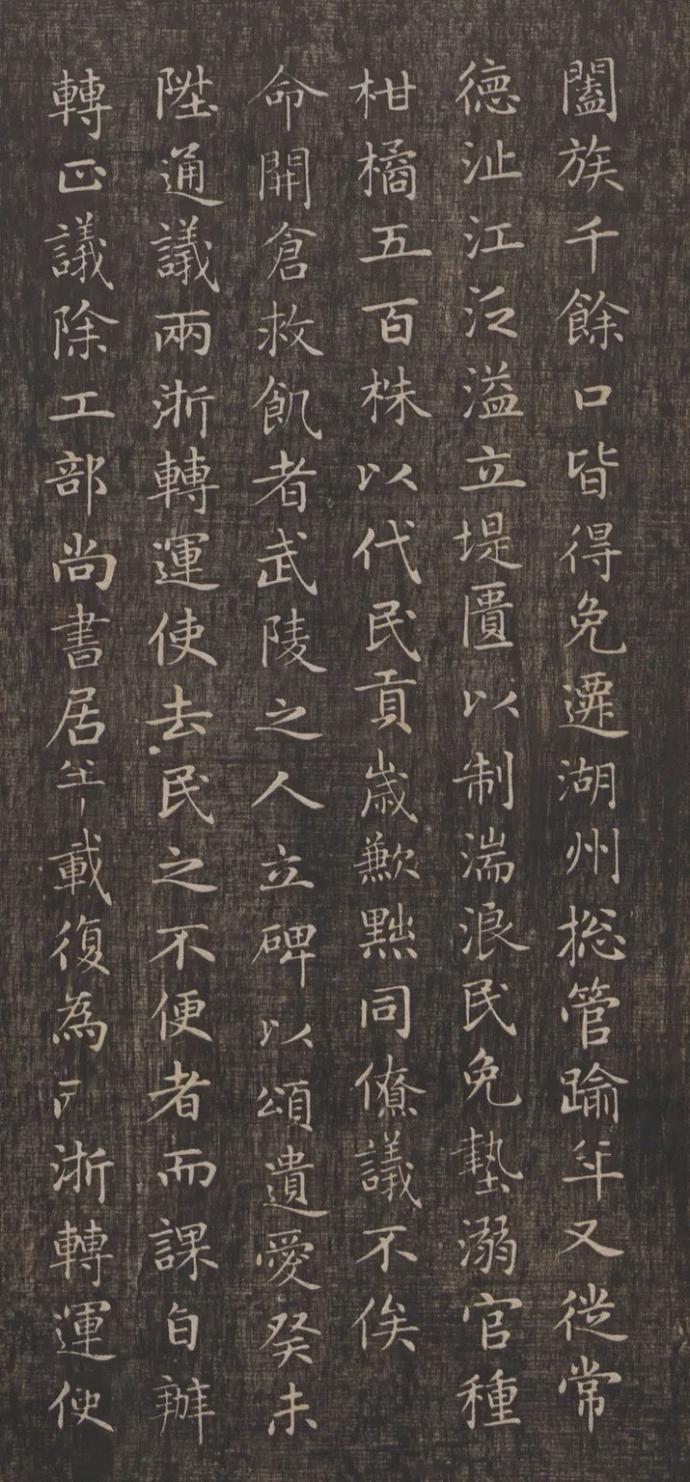 闔族千餘口皆得免遷湖州総管踰年又従常
德沚江泛溢立堤匱以制湍浪民免墊溺官種
柑橘五百株以代民貢歳歉黙同僚議不俟
命開倉救飢者武陵之人立碑以頌遺愛癸未
陞通議兩浙轉運使去民之不便者而課自辦
轉正議除工部尚書居年載復為浙轉運使